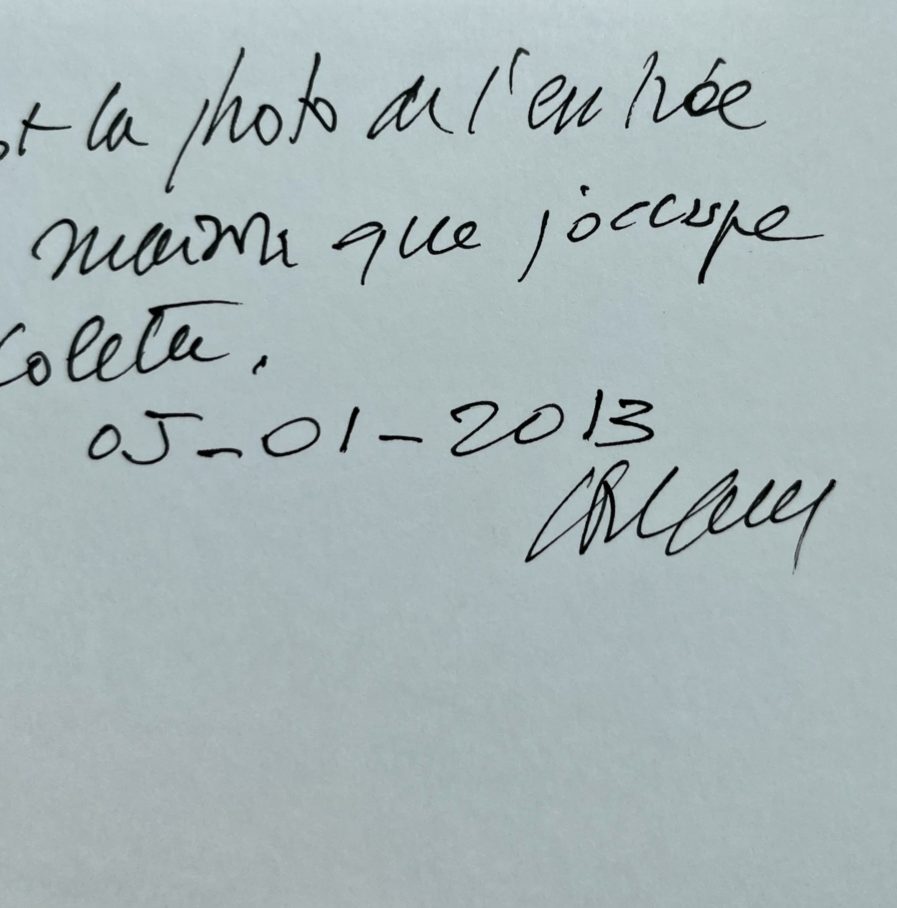 la photo de l'entrée
maison que j'occupe
Coleta.
05-01-2013